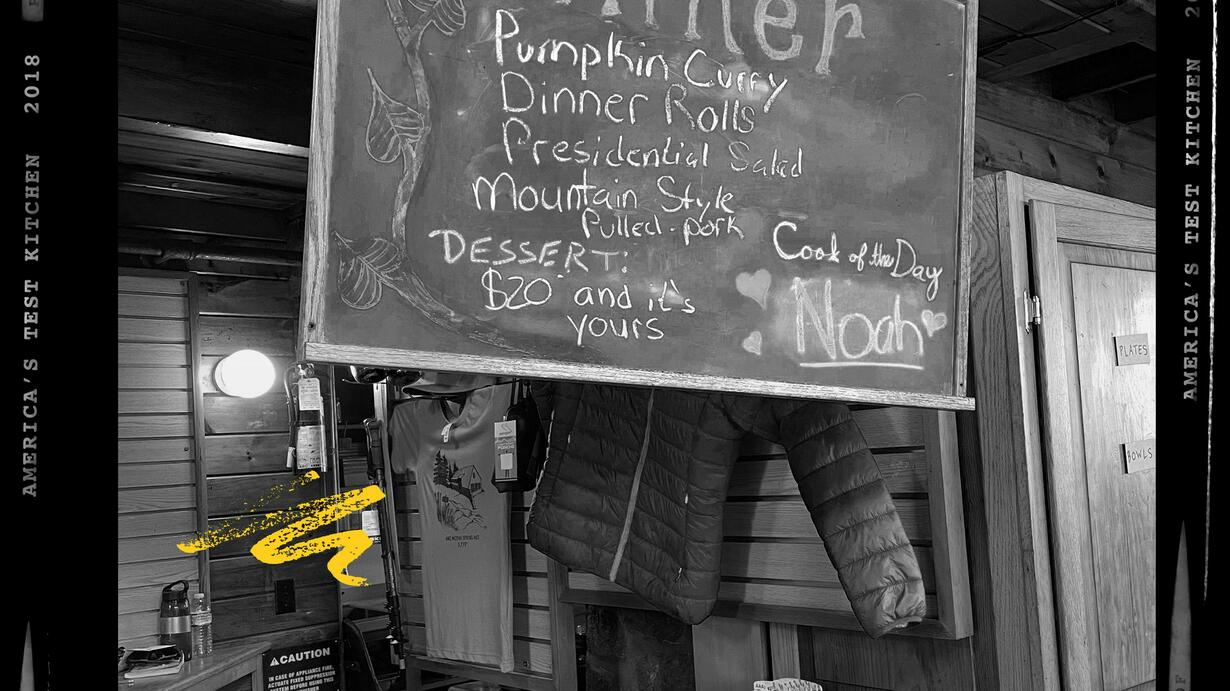 Dinner
Pumpkin Curry
Dinner Rolls
Presidential Salad
Mountain Style
Pulled-pork
DESSERT:
$20 and it's
yours
Cook of the Day
Noah
PLATES
BOWLS
CAUTION
IN CASE OF APPLIANCE FIRE,
ACTUATE FIXED SUPPRESSION
SYSTEM BEFORE USING THIS
AMERICA'S TEST KITCHEN 2018
AMERICA'S TEST KITCHEN 20